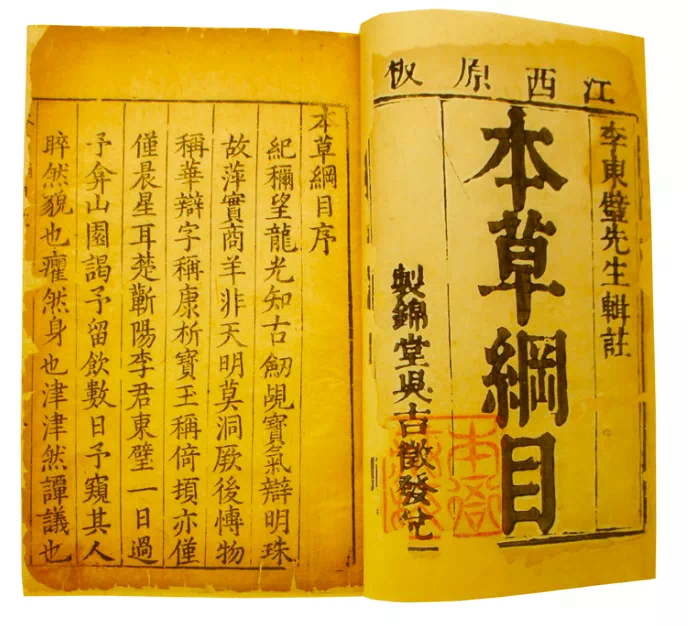 江西原板
李東璧先生輯註
本草綱目
製錦堂吳古徵發兌
本草綱目序
紀穪望龍光知古劒覘寶氣辯明珠
故萍實商羊非天明莫洞厥後愽物
稱華辯字稱康析寶玉稱倚頓亦僅
僅晨星耳楚蘄陽李君東璧一日過
予弇山園謁予留飲數日予窺其人
睟然貌也癯然身也津津然譚議也